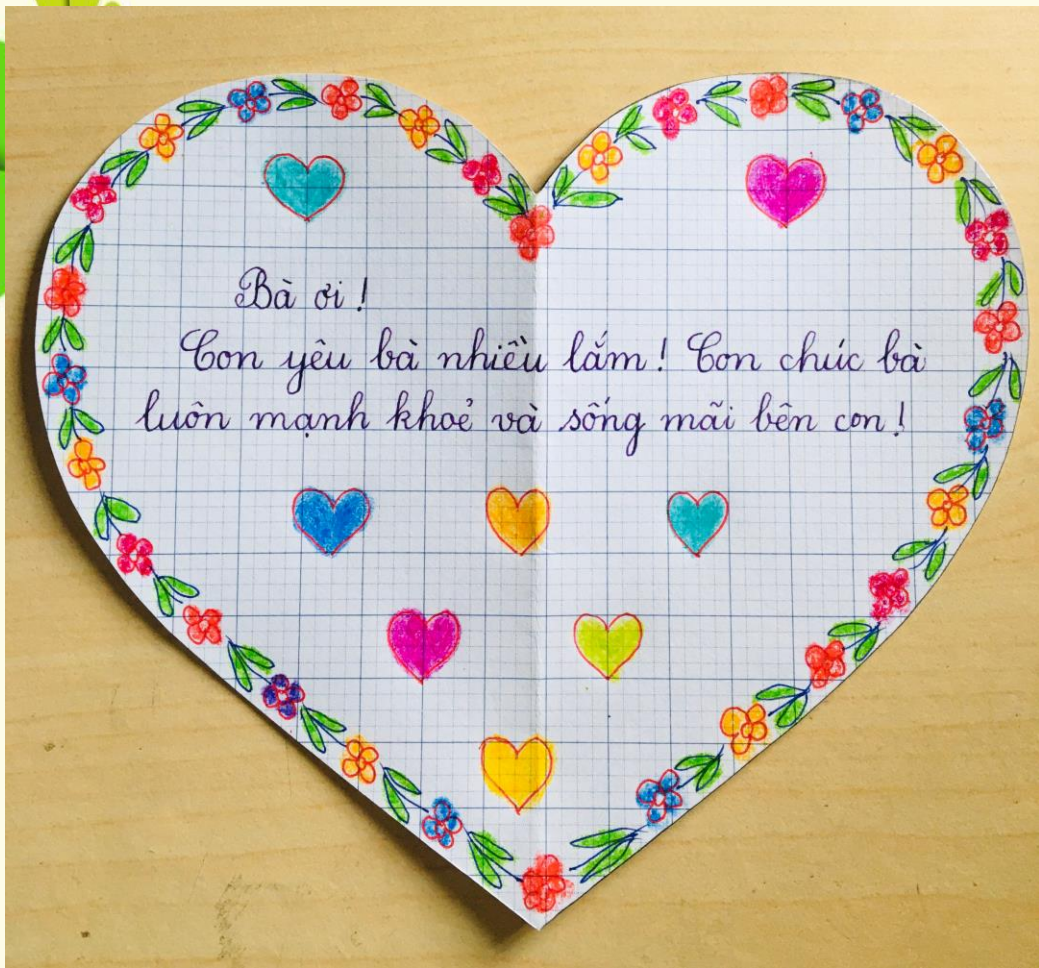 Bà ơi !
Con yêu bà nhiều lắm ! Con chúc bà
luôn mạnh khoẻ và sống mãi bên con !